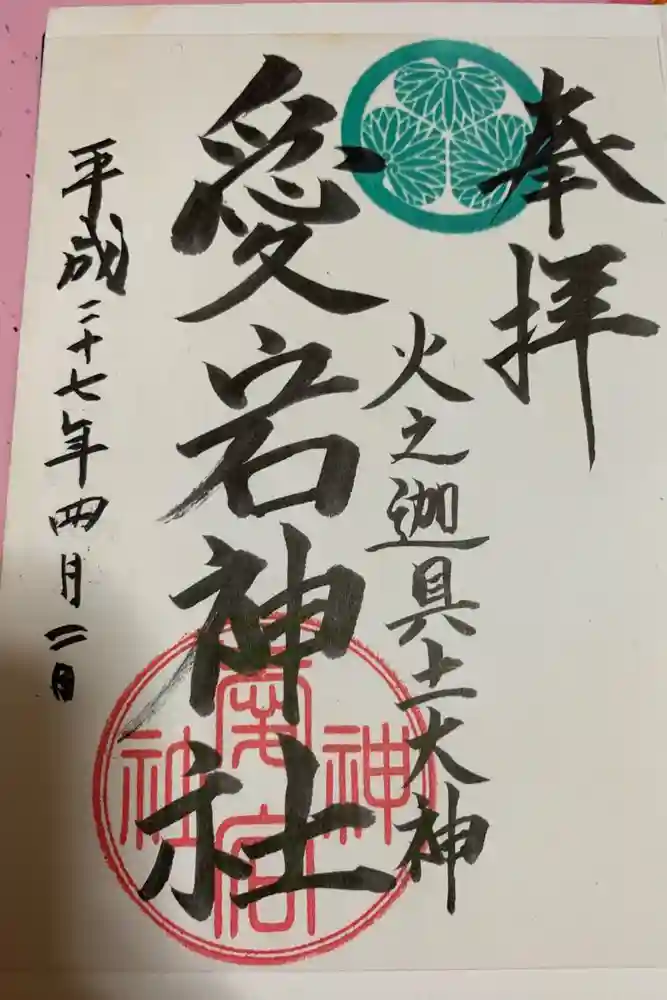 奉拝
火之迦具土大神
愛宕神社
愛宕神社
平成二十七年四月二日